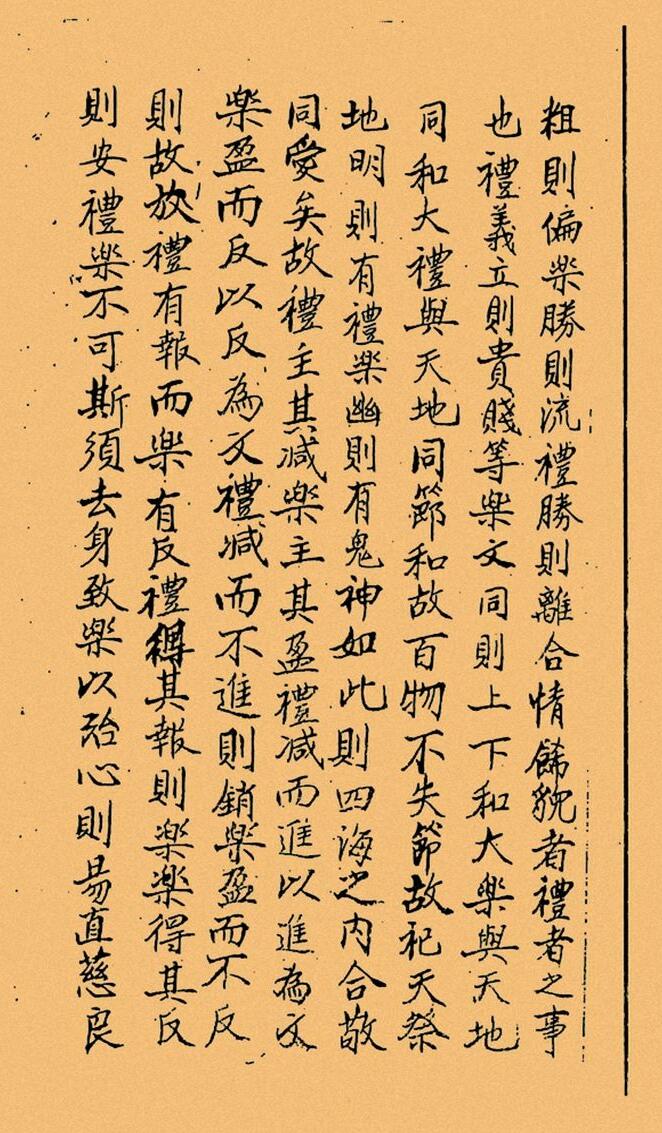 粗則偏樂勝則流禮勝則離合情餙貌者禮者之事
也禮義立則貴賤等樂文同則上下和大樂與天地
同和大禮與天地同節和故百物不失節故祀天祭
地明則有禮樂幽則有鬼神如此則四海之内合敬
同愛矣故禮主其减樂主其盈禮减而進以進為文
樂盈而反以反為文禮减而不進則銷樂盈而不反
則故放禮有報而樂有反禮得其報則樂樂得其反
則安禮樂不可斯須去身致樂以治心則易直慈良